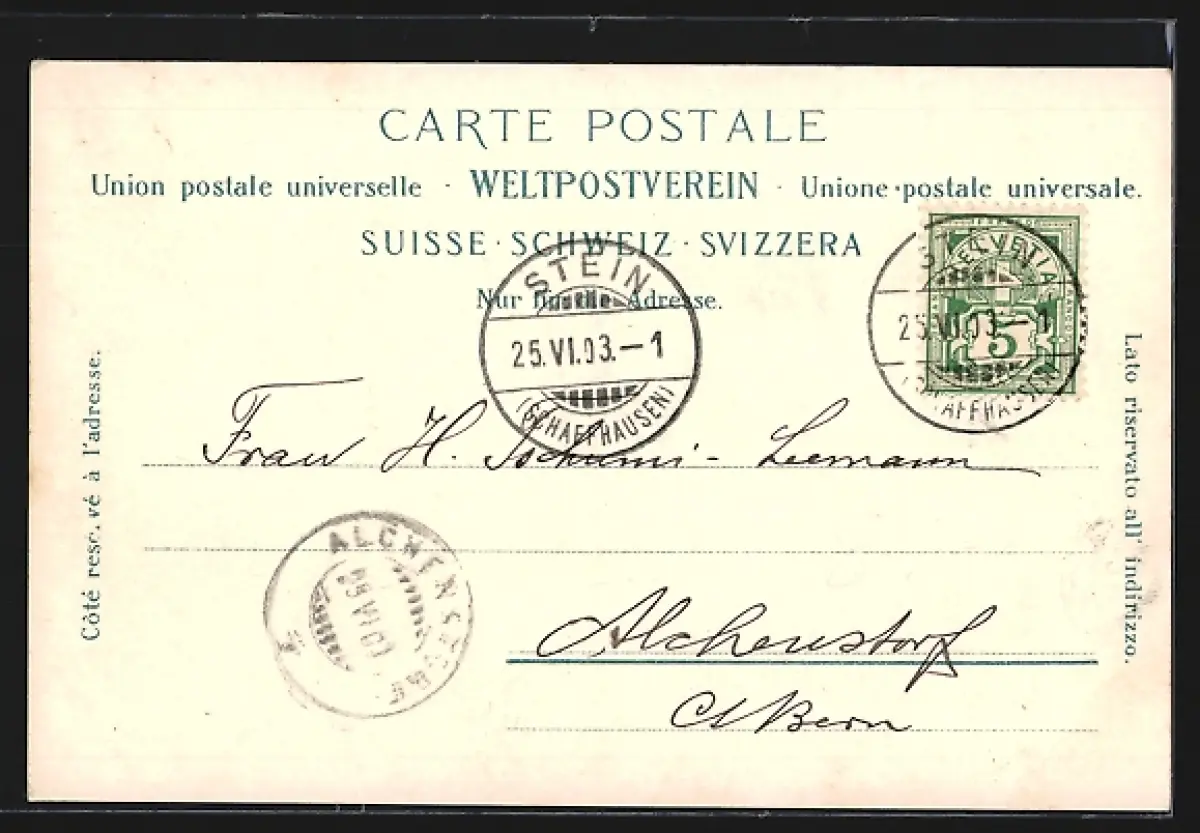 CARTE POSTALE
Union postale universelle · WELTPOSTVEREIN · Unione postale universale.
SUISSE · SCHWEIZ · SVIZZERA
Nur für die Adresse.
STEIN
25.VI.03.–1
(SCHAFFHAUSEN)
HELVETIA
FRANCO
5
STEIN
25.VI.03.–1
(SCHAFFHAUSEN)
Côté reservé à l'adresse.
Lato riservato all' indirizzo.
Frau H. Tschumi- Leemann
ALCHENSTORF
VI 03
Alchenstorf
Ct Bern